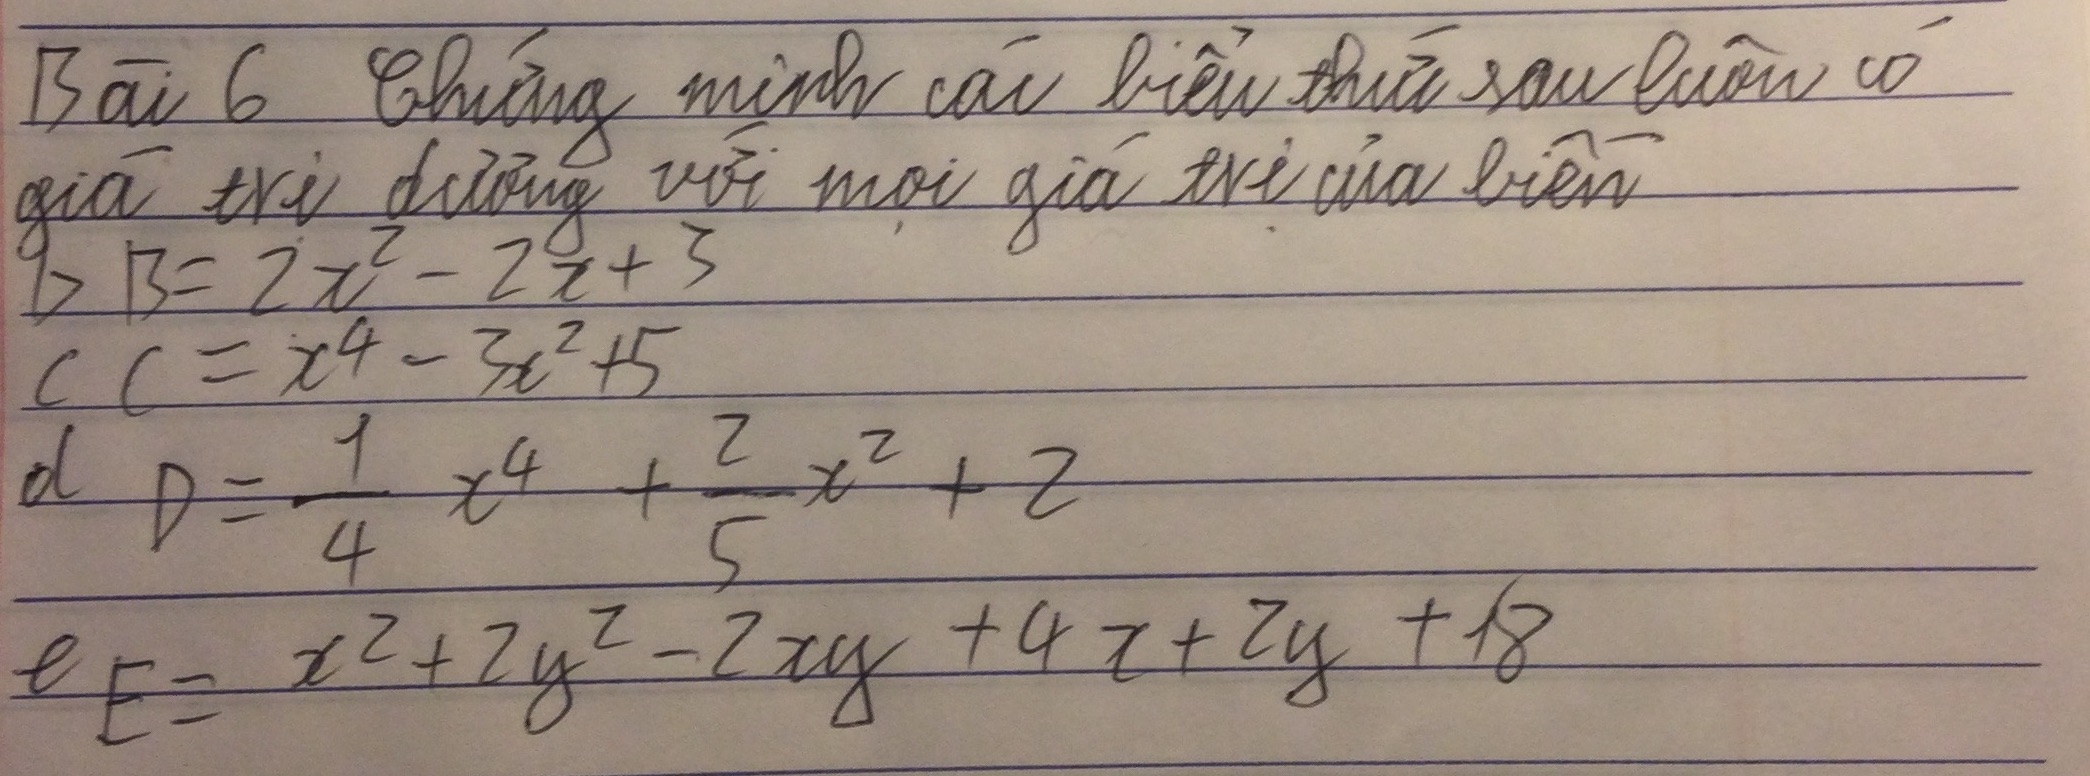 Bài 6 Chứng minh các biểu thức sau luôn có
giá trị dương với mọi giá trị của biến
b B = 2x² - 2x + 3
c C = x⁴ - 3x² + 5
d D = 1/4 x⁴ + 2/5 x² + 2
e E = x² + 2y² - 2xy + 4x + 2y + 18